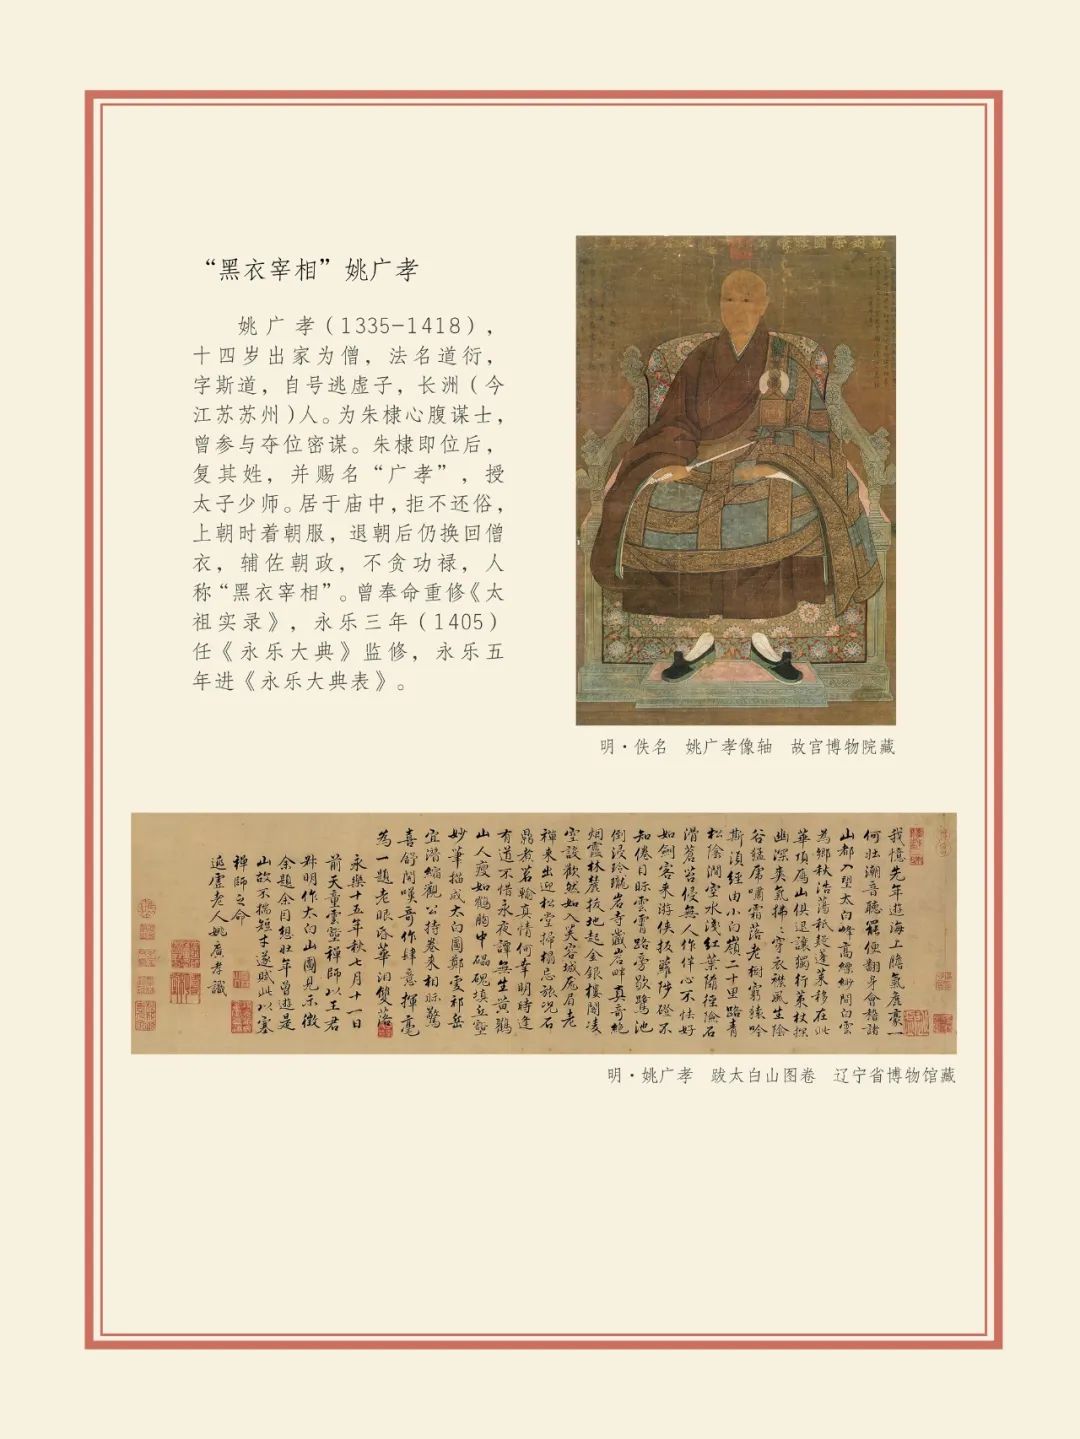 “黑衣宰相”姚广孝
姚广孝(1335-1418),
十四岁出家为僧，法名道衍，
字斯道，自号逃虚子，长洲(今
江苏苏州)人。为朱棣心腹谋士，
曾参与夺位密谋。朱棣即位后，
复其姓，并赐名“广孝”，授
太子少师。居于庙中，拒不还俗，
上朝时着朝服，退朝后仍换回僧
衣，辅佐朝政，不贪功禄，人
称“黑衣宰相”。曾奉命重修《太
祖实录》，永乐三年(1405)
任《永乐大典》监修，永乐五
年进《永乐大典表》。
明·佚名　姚广孝像轴　故宫博物院藏
我憶先年遊海上膽氣麁豪一
何壮潮音聽罷便翻身會稽諸
山都入望太白峰高縹緲間白雲
為鄉秋浩蕩秖疑蓬莱移在此
華頂鴈山俱退讓獨行策杖探
幽深爽氣拂〻穿衣襟風生陰
谷猛虎嘯霜落老樹窮猿吟
斯須經由小白嶺二十里路青
松陰澗空水淺紅葉閙徑險石
滑蒼苔侵無人作伴心不怯好
如劍客来游俠扳蘿陟磴不
知倦目眎雲霄路旁歇鷺池
倒浸玲瓏岩寺藏岩畔真奇絶
烟霞林麓拔地起金銀樓閣凌
空設歡然如入芙容城厖眉老
禅来出迎松堂掃榻忘旅况石
鼎煮茗輸真情何幸明時逢
有道不惜永夜譚無生黄鶴
山人瘦如鶴胸中磊磈填丘壑
妙筆描成太白圖鄭虔祁岳
宜潜縮觀公持卷来相眎驚
喜舒閲嘆奇作肆意揮毫
為一題老眼昏華泪雙落
永樂十五年秋七月十一日
前天童雲壑禅師以王君
叔明作太白山圖見示徴
余題余因想壮年曽遊是
山故不揣短才遂賦此以塞
禅師之命
逃虚老人姚廣孝識
明·姚广孝　跋太白山图卷　辽宁省博物馆藏